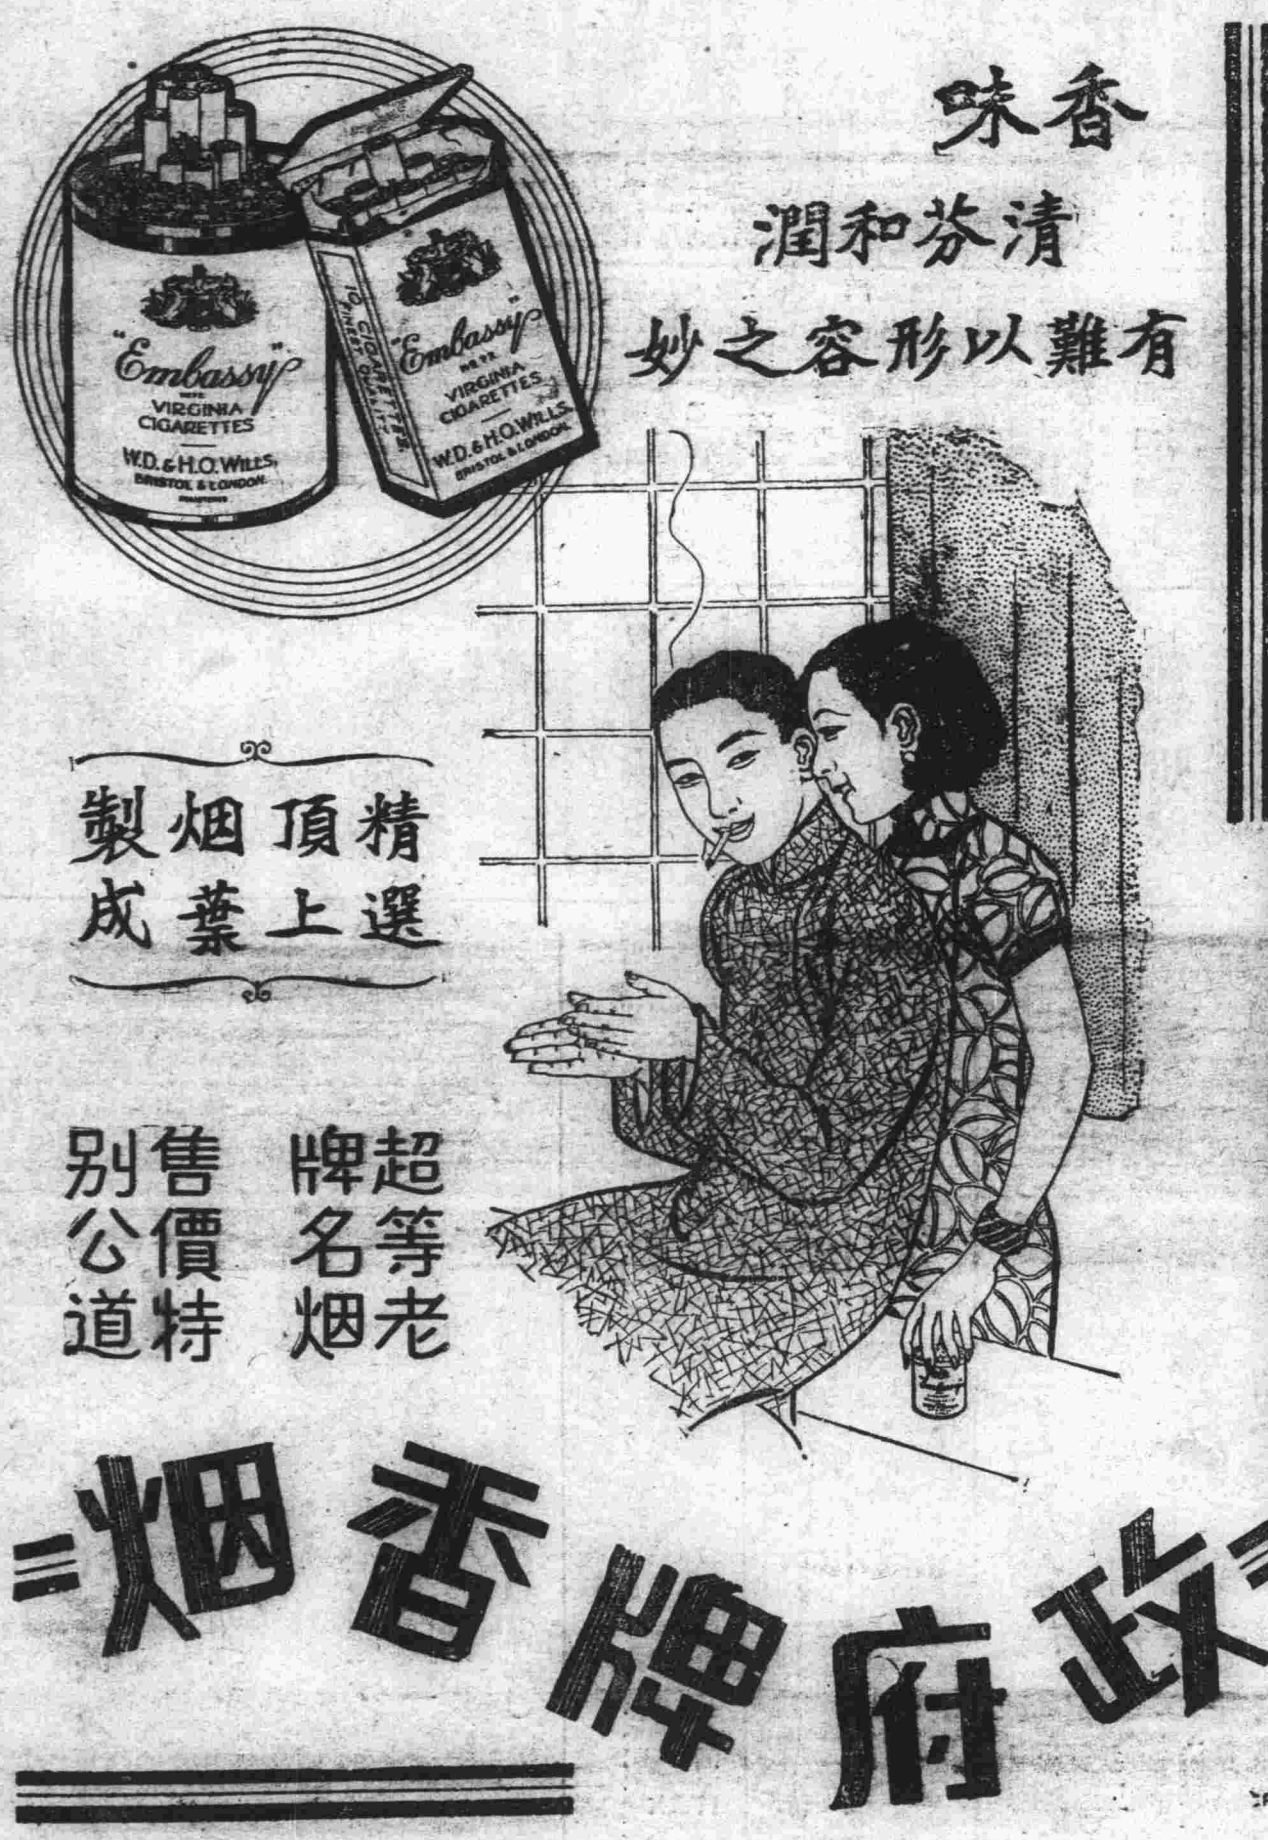 香味
清芬和潤
有難以形容之妙
"Embassy"
VIRGINIA
CIGARETTES
W.D. & H.O. WILLS,
BRISTOL & LONDON.
10 CIGARETTES
FINEST QUALITY
"Embassy"
VIRGINIA
CIGARETTES
W.D. & H.O. WILLS.
BRISTOL & LONDON.
精頂烟製
選上葉成
超等老
牌名烟
售價特
别公道
政府牌香烟